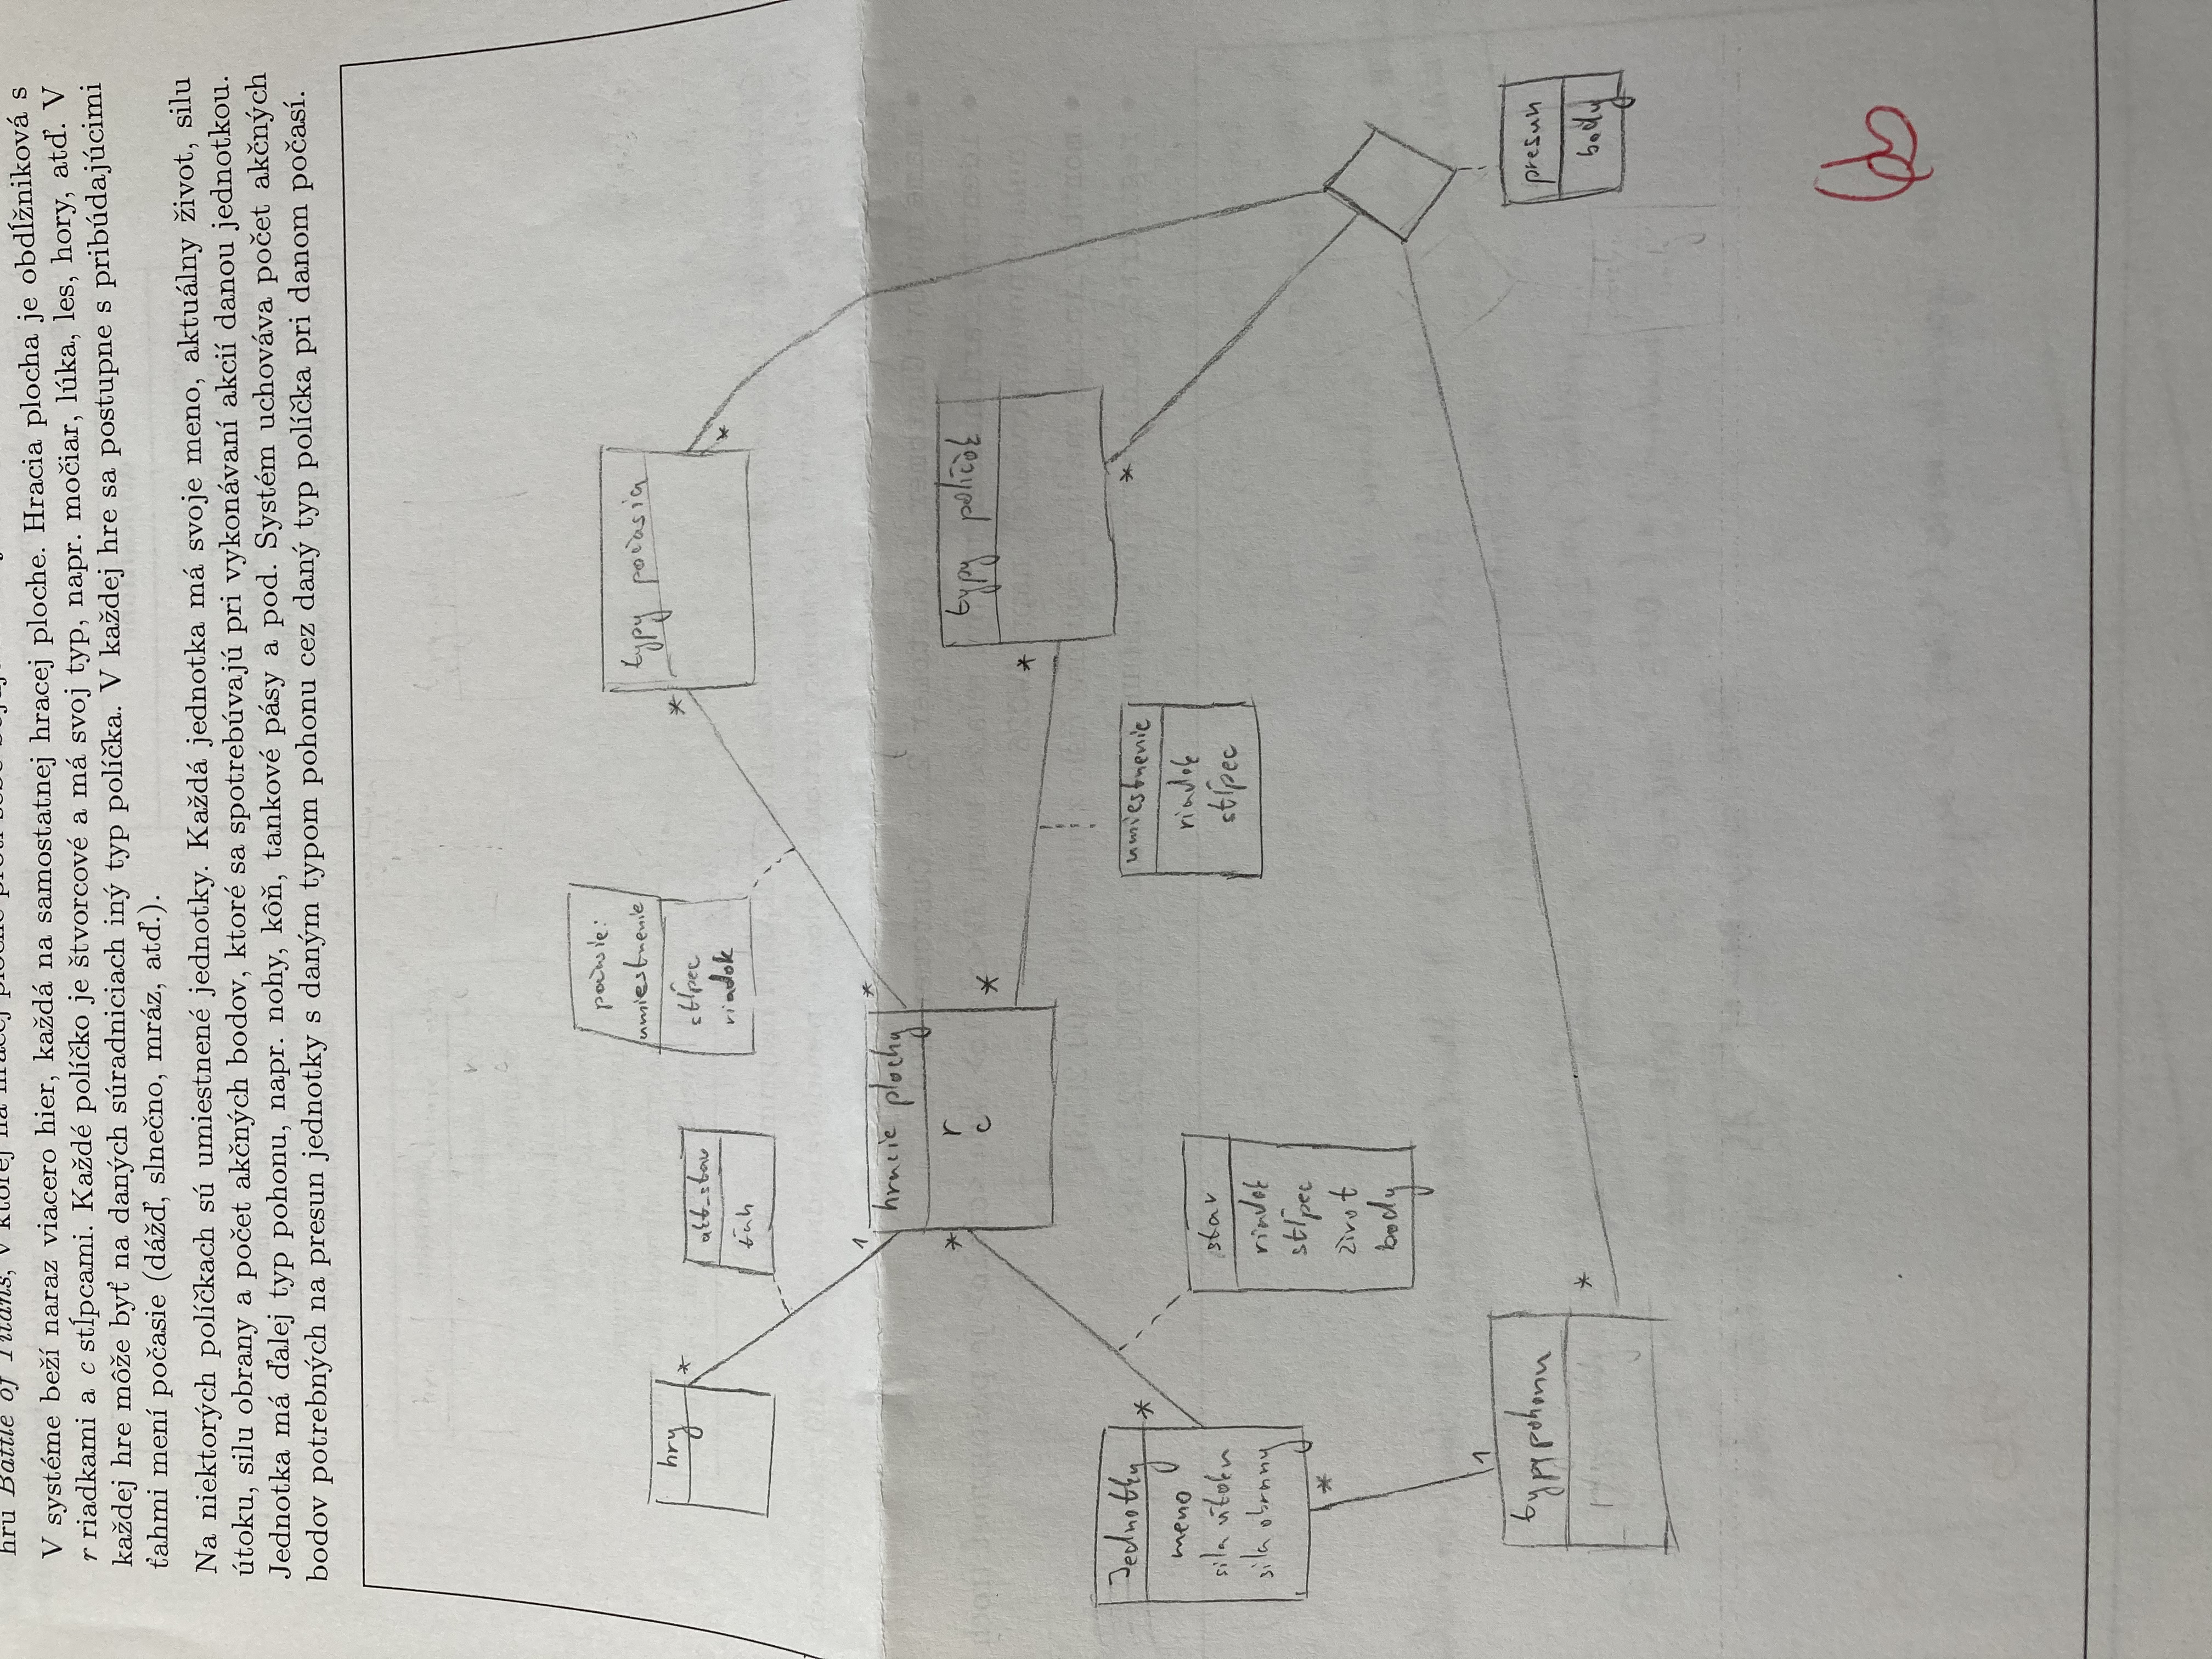 hru Battle of Titans, v ktorej na hracej ploche proti sebe
V systéme beží naraz viacero hier, každá na samostatnej hracej ploche. Hracia plocha je obdĺžniková s
r riadkami a c stĺpcami. Každé políčko je štvorcové a má svoj typ, napr. močiar, lúka, les, hory, atď. V
každej hre môže byť na daných súradniciach iný typ políčka. V každej hre sa postupne s pribúdajúcimi
ťahmi mení počasie (dážď, slnečno, mráz, atď.).
Na niektorých políčkach sú umiestnené jednotky. Každá jednotka má svoje meno, aktuálny život, silu
útoku, silu obrany a počet akčných bodov, ktoré sa spotrebúvajú pri vykonávaní akcií danou jednotkou.
Jednotka má ďalej typ pohonu, napr. nohy, kôň, tankové pásy a pod. Systém uchováva počet akčných
bodov potrebných na presun jednotky s daným typom pohonu cez daný typ políčka pri danom počasí.
počasie:
umiestnenie
stĺpec
riadok
typy počasia
*
*
hry
*
akt_stav
ťah
1
hracie plochy
*
r
c
*
*
typy políčok
*
*
Jednotky
*
meno
sila útoku
sila obranny
*
umiestnenie
riadok
stĺpec
stav
riadok
stĺpec
život
body
1
typy pohonu
*
presun
body
6b